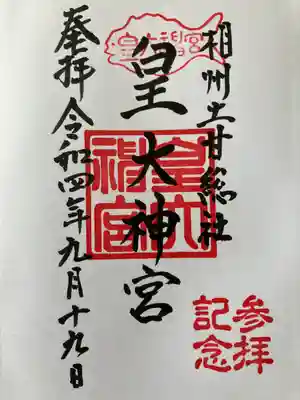 相州土甘総社
皇大神宮
皇大神宮
皇大神宮
奉拝令和四年九月十九日
参拝
記念